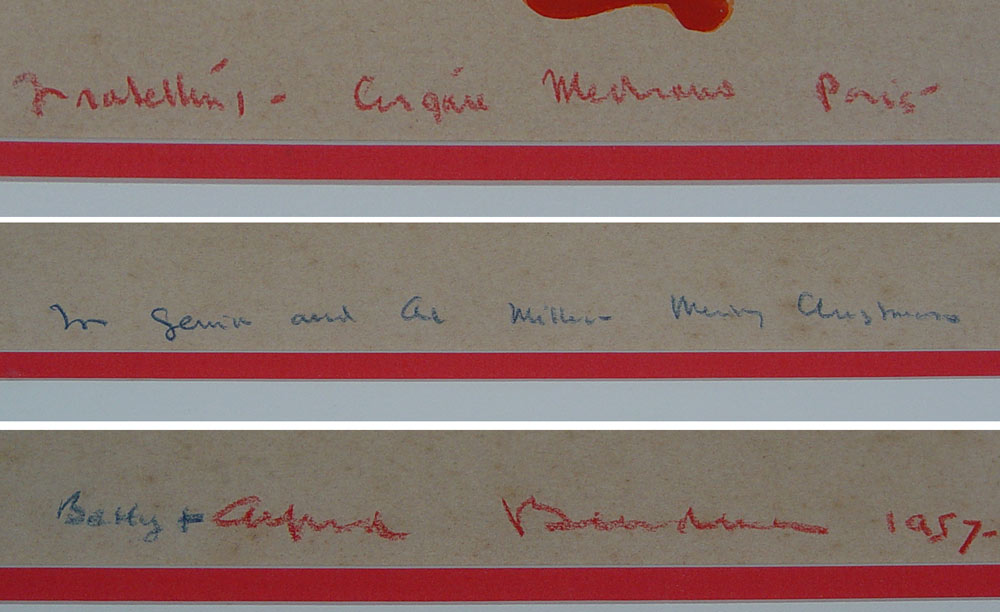 Fratellini - Cirque Medrano Paris -
For Genia and Al Miller - Merry Christmas
Betty + Alfred Bendiner 1957 -